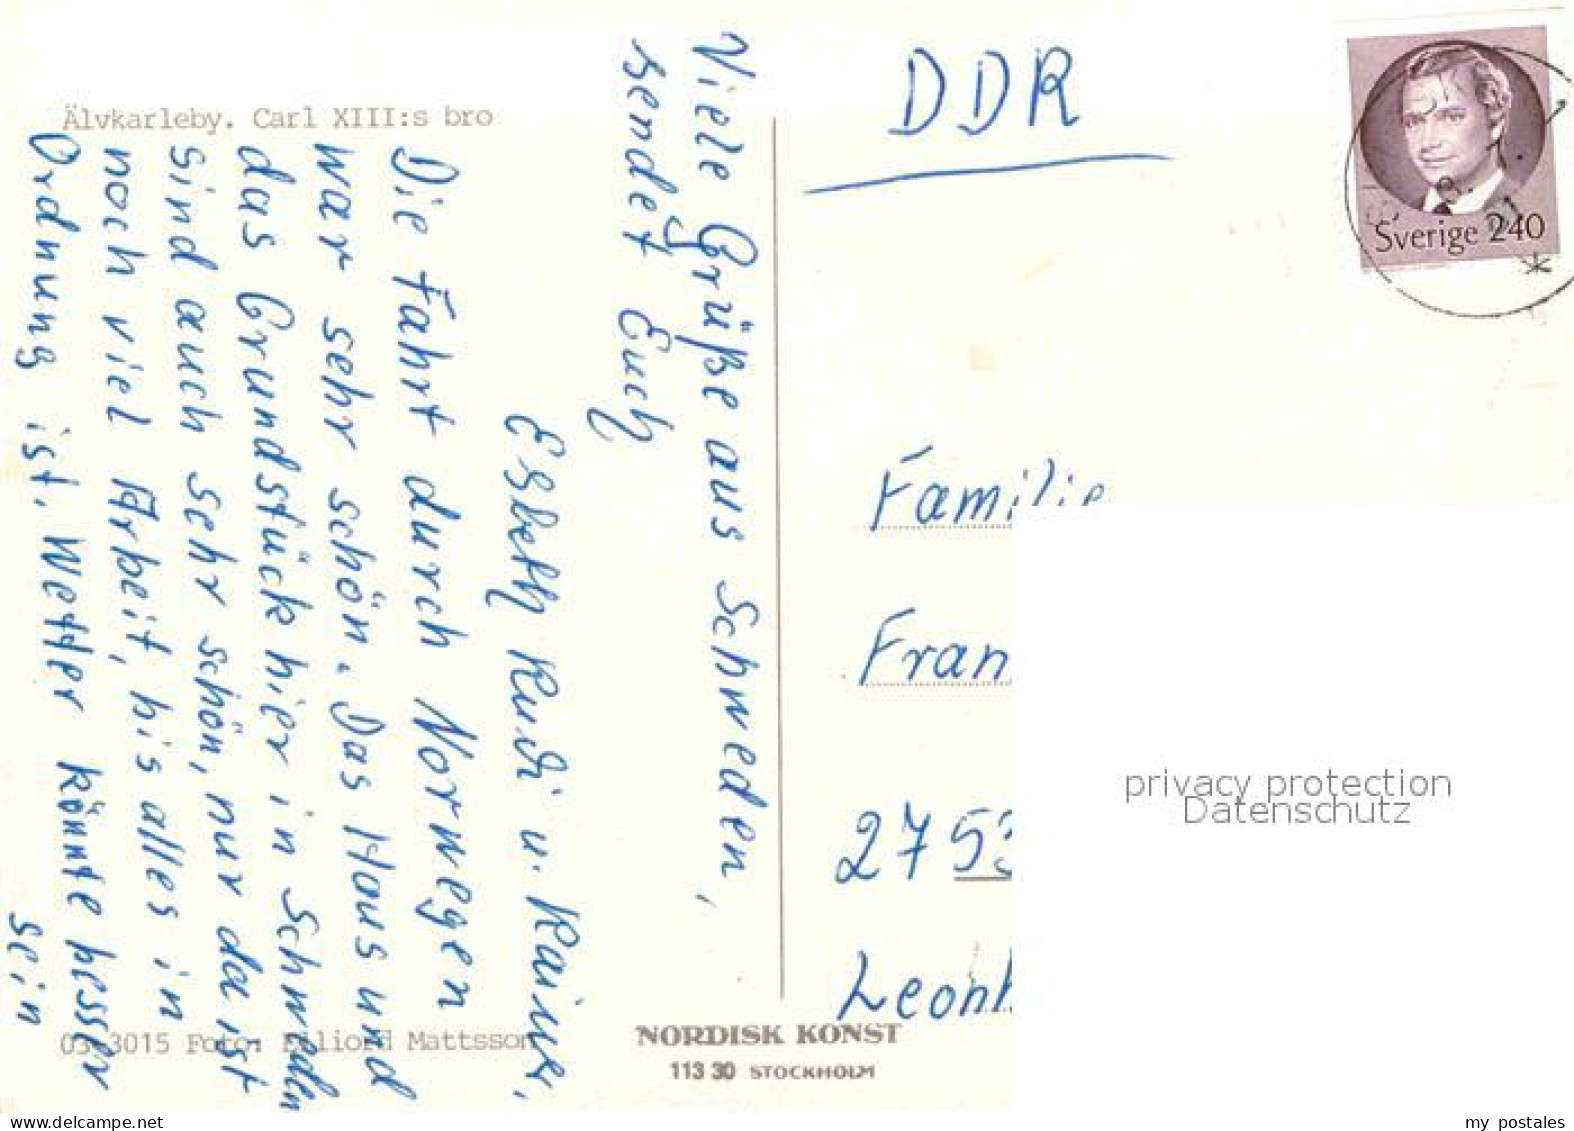 Älvkarleby. Carl XIII:s bro
Viele Grüße aus Schweden,
sendet Euch
Elsbeth Rudi u. Rainer,
Die Fahrt durch Norwegen
war sehr schön. Das Haus und
das Grundstück hier in Schweden
sind auch sehr schön, nur da ist
noch viel Arbeit, bis alles in
Ordnung ist. Wetter könnte besser
sein
03-3015 Foto: Mattsson
NORDISK KONST
113 30 STOCKHOLM
DDR
Sverige 240
Familie
Fran
2753
Leonh
privacy protection
Datenschutz
www.delcampe.net
my_postales